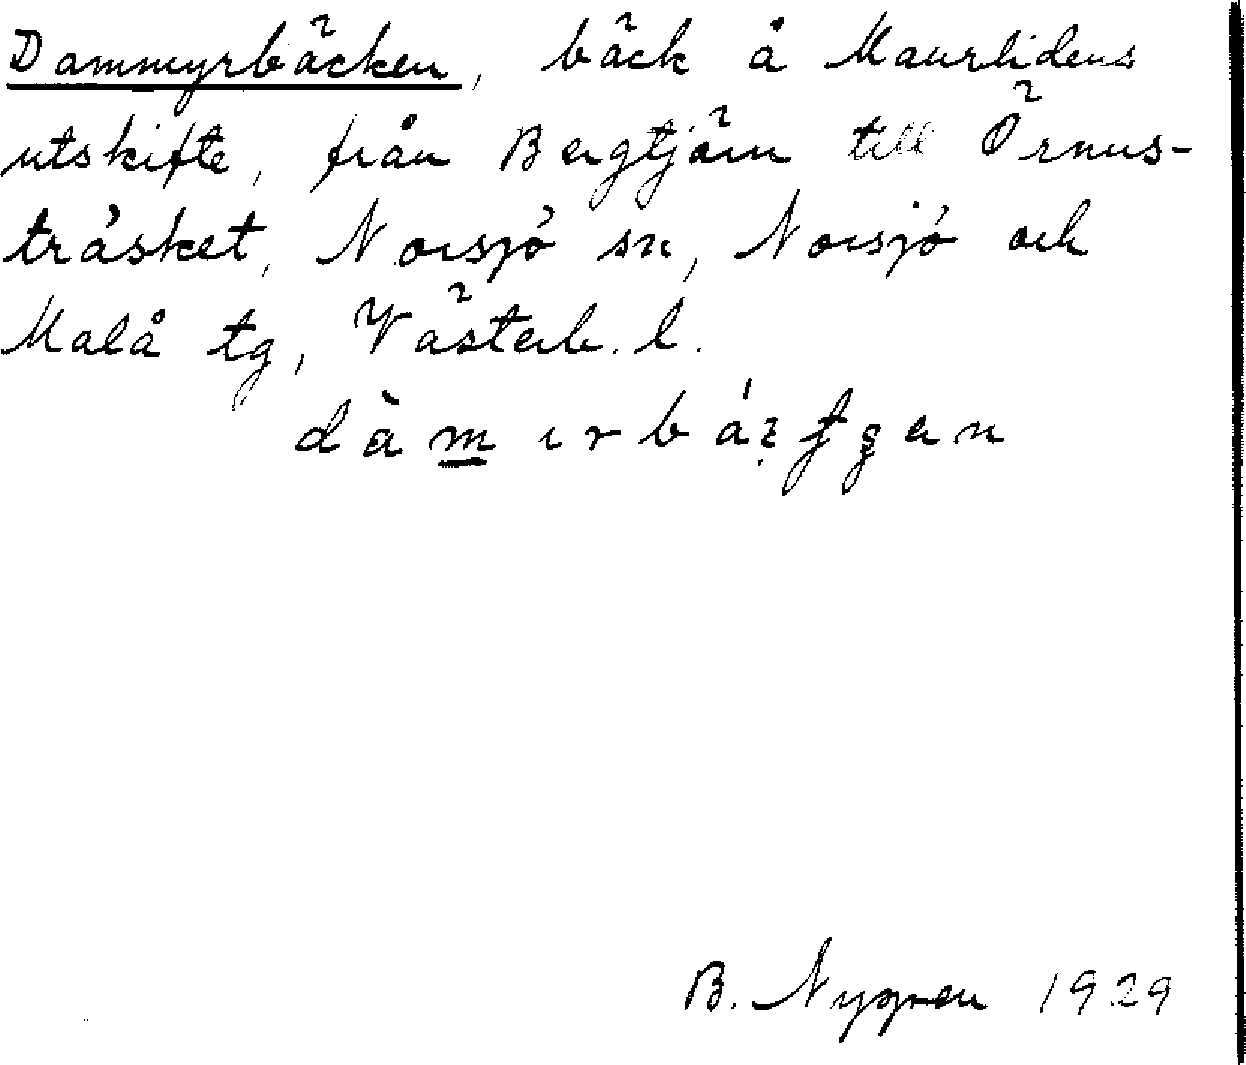 Dammyrbäcken, bäck å Maurlidens
utskifte, från Bergtjärn till Örnus-
träsket, Norsjö sn, Norsjö och
Malå tg, Västerb. l.
B. Nygren 1929